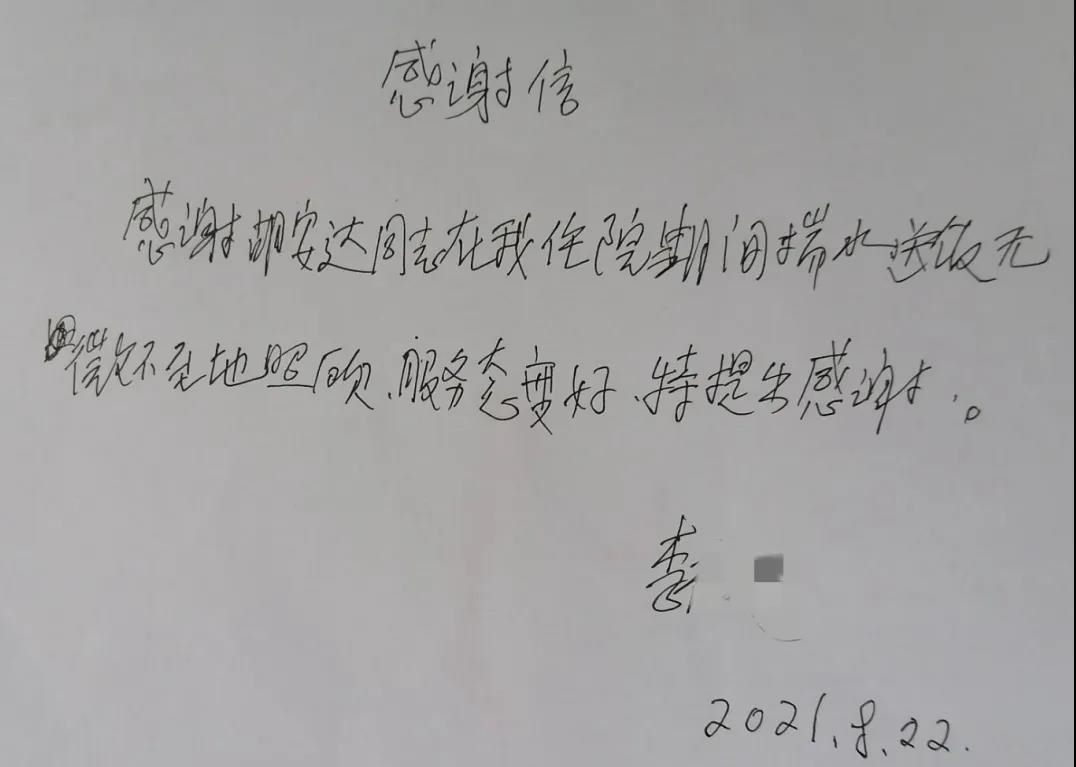 感谢信
感谢胡安达同志在我住院期间端水送饭无
微不至地照顾、服务态度好、特提出感谢。
李
2021.8.22.